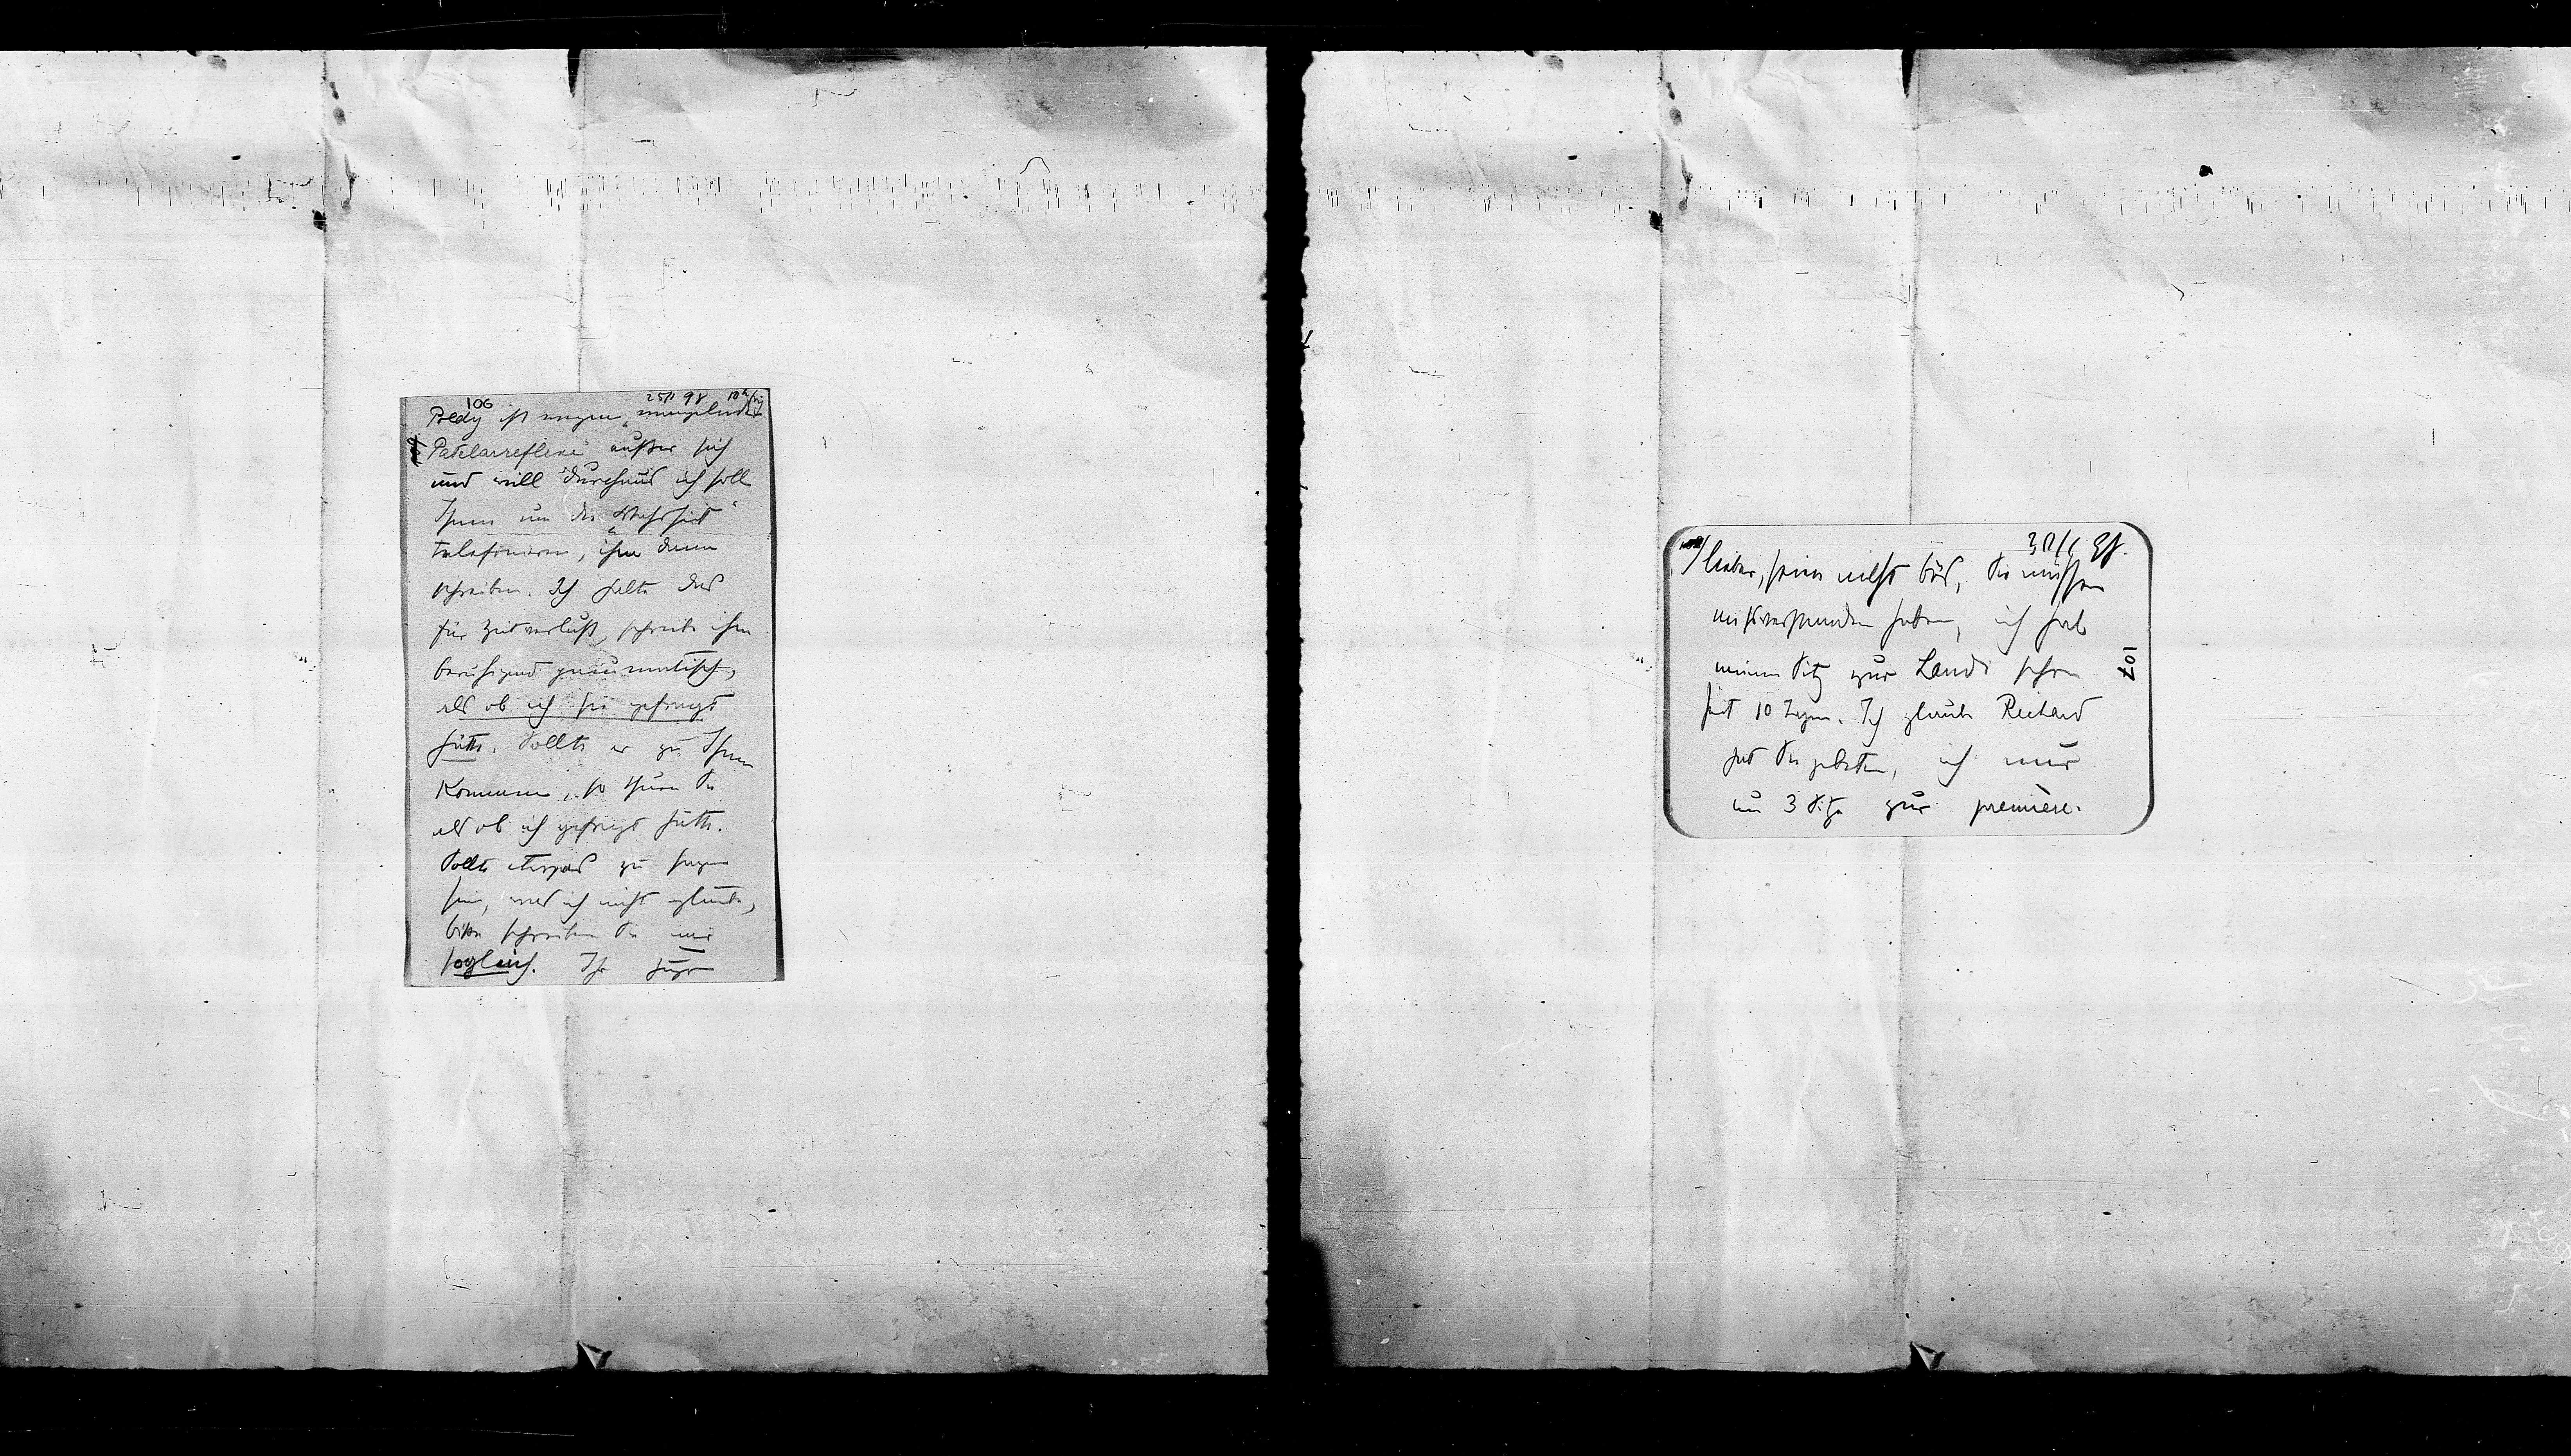 106
25/I 98
Poldy ist wegen „mangelnder
Patelarreflexe“ außer sich
und will durchaus ich soll
Ihnen um die „Wahrheit“
telefonieren, ihm dann
schreiben. Ich halte das
für Zeitverlust, schreibe ihm
beruhigend pneumatisch,
als ob ich Sie gefragt
hätte. Sollte er zu Ihnen
kommen, so thuen Sie
als ob ich gefragt hätte.
Sollte etwas zu sagen
sein, was ich nicht glaube,
bitte schreiben Sie mir
sogleich. Ihr Hugo
98.
lieber, seien nicht bös, Sie müssen
missverstanden haben, ich hab
meinen Sitz zur Landi schon
seit 10 Tagen. Ich glaube Richard
hat Sie gebeten, ich nur
um 3 Sitze zur première.
107